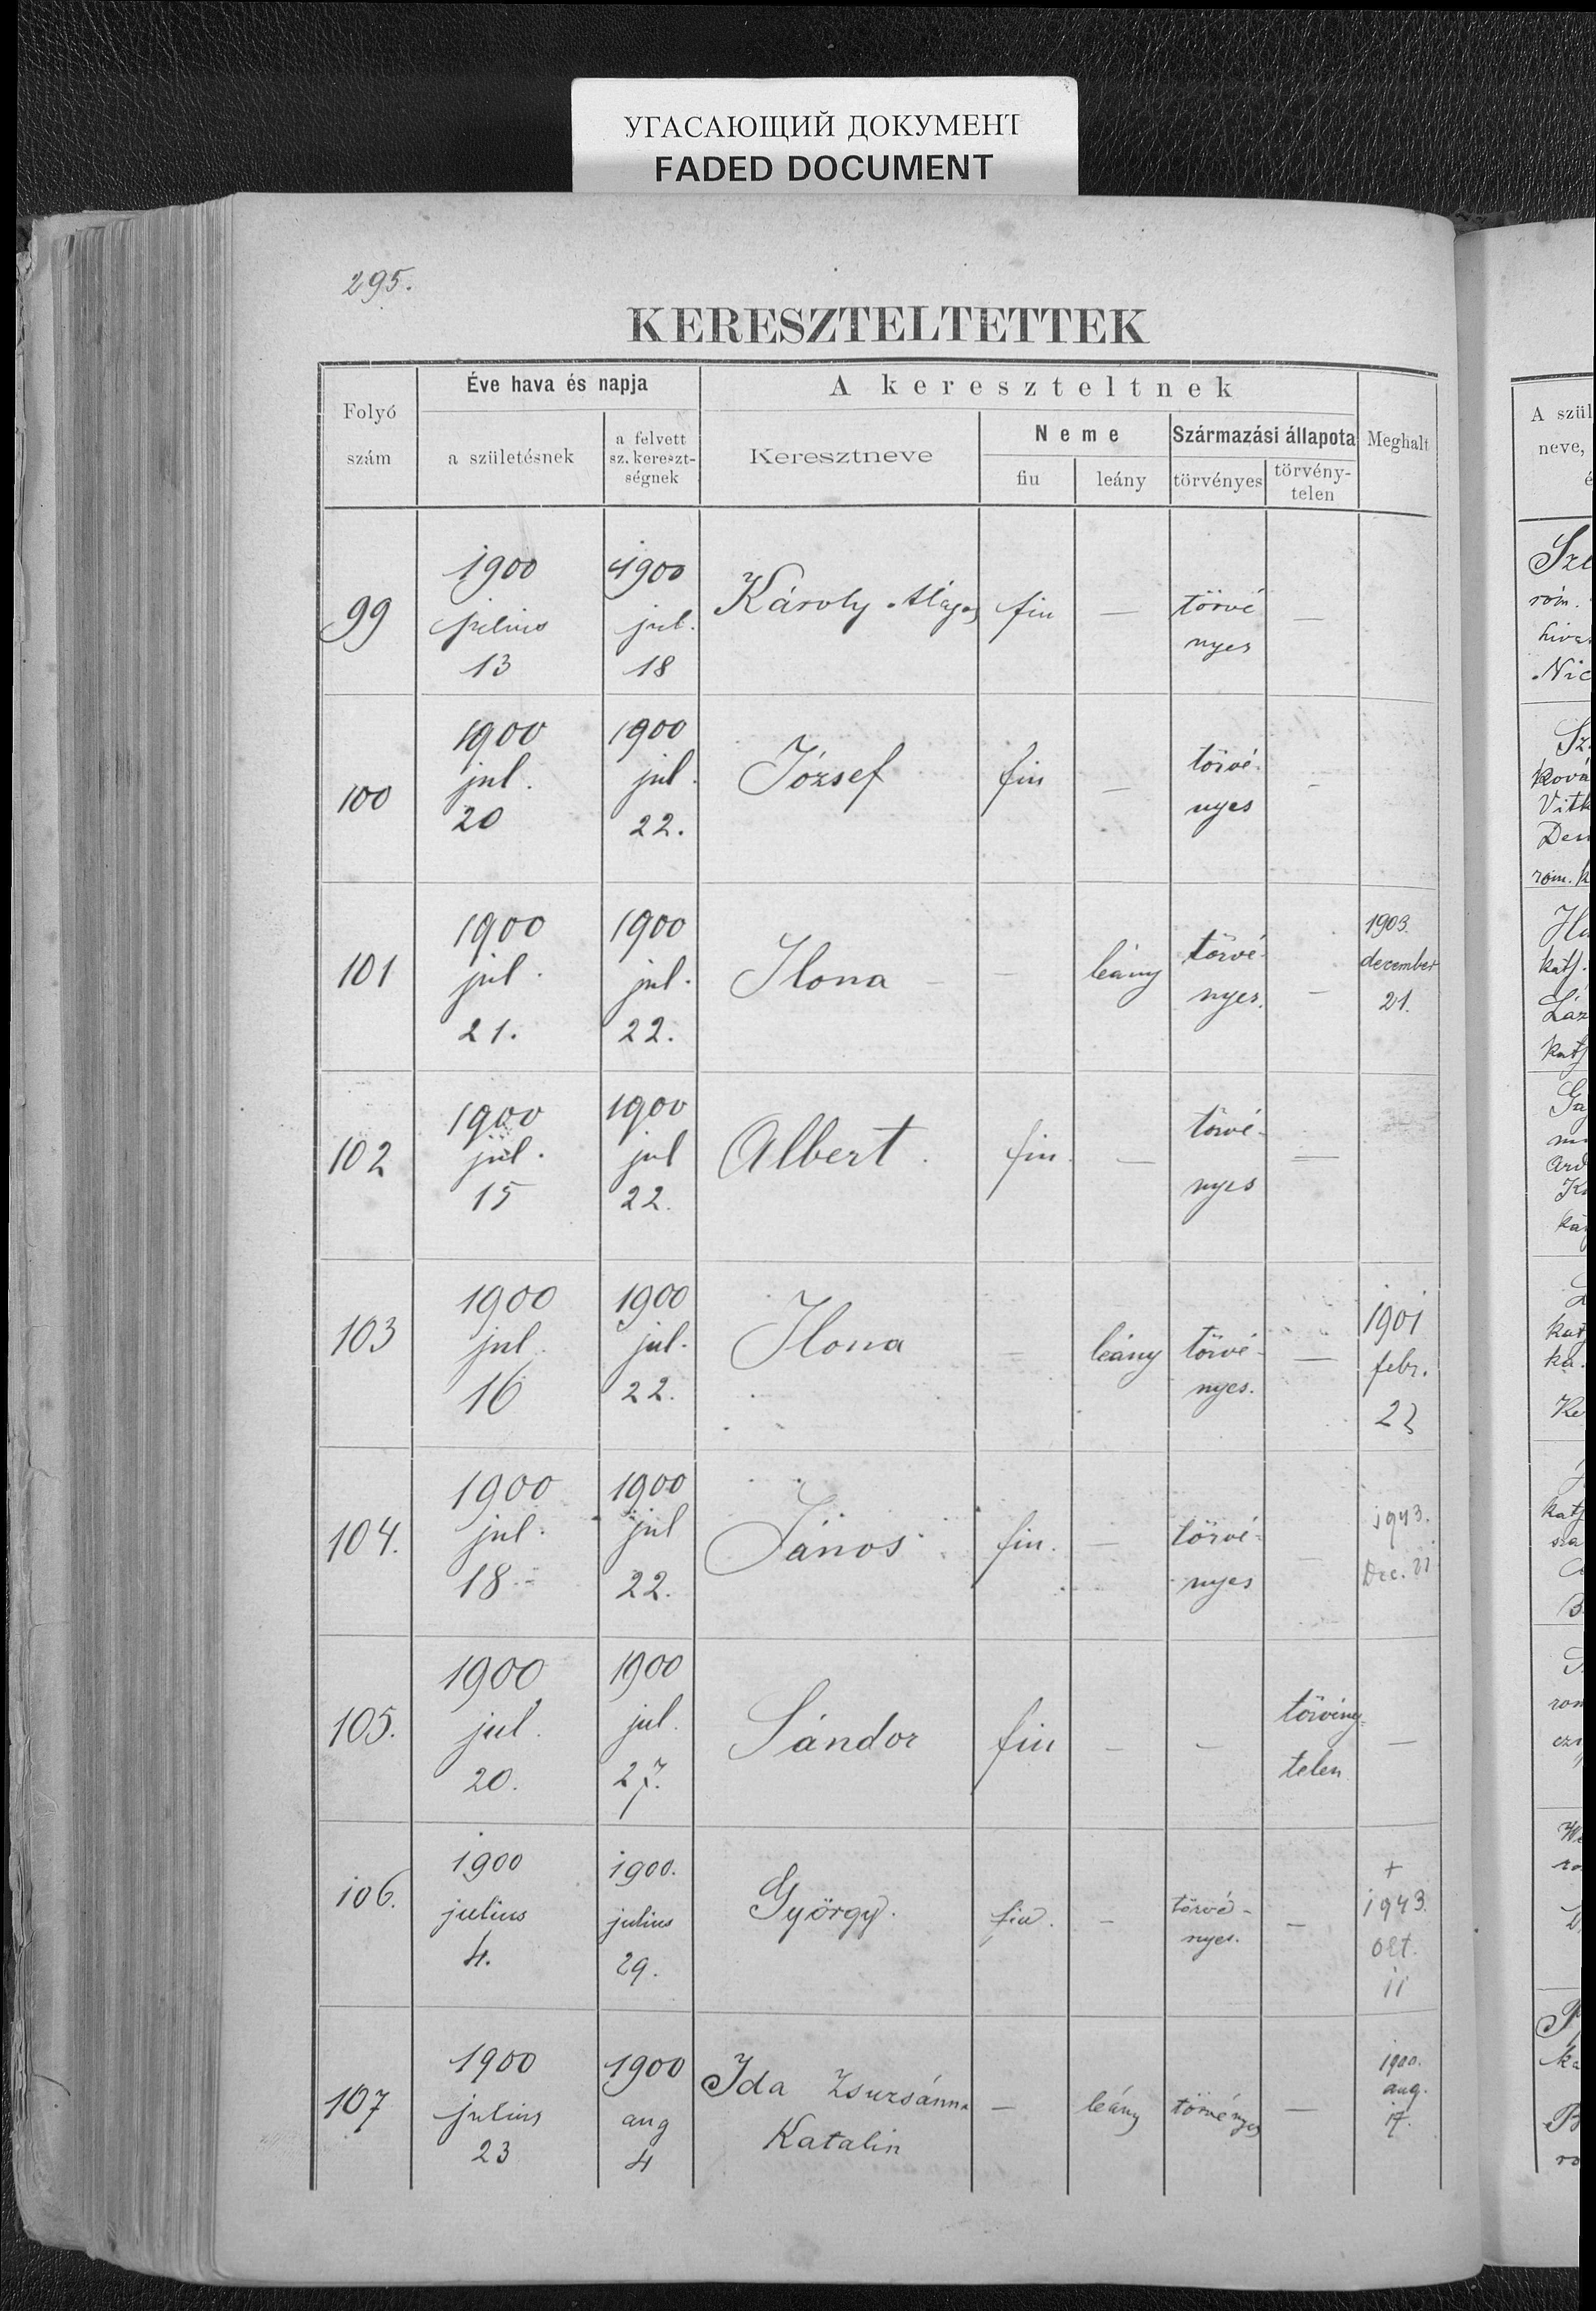 УГАСАЮЩИЙ ДОКУМЕНТ
FADED DOCUMENT
295.
KERESZTELTETTEK
Folyó
szám
Éve hava és napja
a születésnek
a felvett
sz. kereszt-
ségnek
A kereszteltnek
Keresztneve
Neme
fiu
leány
Származási állapota
törvényes
törvény-
telen
Meghalt
99
1900
julius
13
1900
jul.
18
Károly
fiu
—
törvé
nyes
—
100
1900
jul.
20
1900
jul.
22.
József
fiu
—
törvé-
nyes
-
101
1900
jul.
21.
1900
jul.
22.
Ilona
—
leány
törvé-
nyes.
—
1903.
december
21.
102
1900
jul.
15
1900
jul
22.
Albert.
fiu.
—
törvé-
nyes
—
103
1900
jul.
16
1900
jul.
22.
Ilona
—
leány
törvé-
nyes.
—
1901
febr.
23
104.
1900
jul.
18
1900
jul
22.
János
fiu.
—
törvé-
nyes
—
1943.
Dec.
105.
1900
jul.
20.
1900
jul.
27.
Sándor
fiu
—
—
törvény-
telen
—
106.
1900
julius
4.
1900.
julius
29.
György.
fiu.
-
törvé-
nyes.
-
+
1943.
okt.
11
107
1900
julius
23
1900
aug
4
Ida Zsuzsánna
Katalin
—
leány
törvényes
—
1900.
aug.
17.
A szül
neve,
é